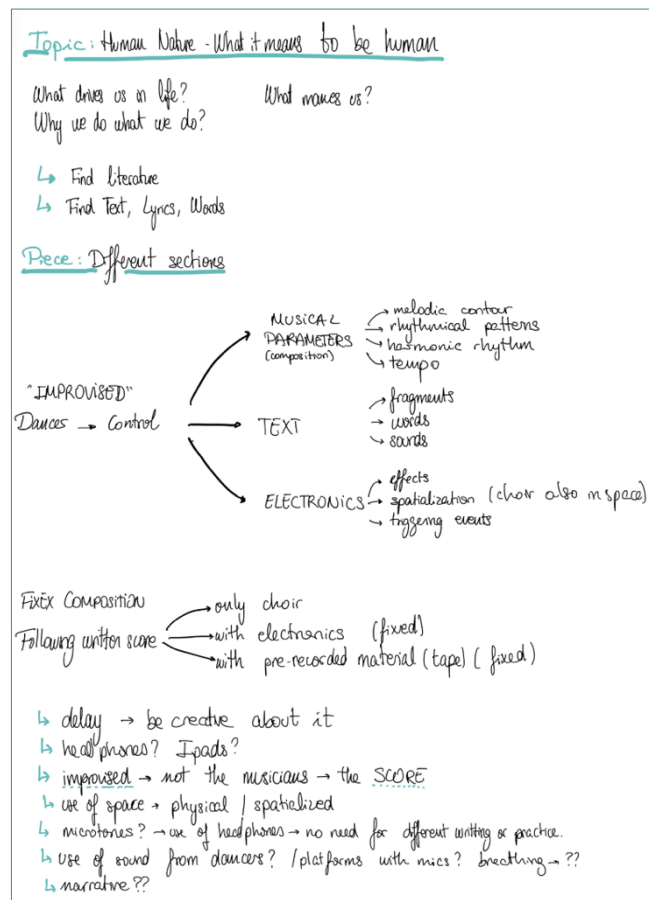 Topic: Human Nature - What it means to be human
What drives us in life? What makes us?
Why we do what we do?
↳ Find literature
↳ Find Text, Lyrics, Words
Piece: Different sections
"IMPROVISED"
Dances → Control
MUSICAL
PARAMETERS
(composition)
→ melodic contour
→ rhythmical patterns
→ harmonic rhythm
→ tempo
TEXT
→ fragments
→ words
→ sounds
ELECTRONICS
→ effects
→ spatialization (choir also in space)
→ triggering events
FIXEX COMPOSITION
Following written score
→ only choir
→ with electronics (fixed)
→ with pre-recorded material (tape) (fixed)
↳ delay → be creative about it
↳ headphones? Ipads?
↳ improvised → not the musicians → the SCORE
↳ use of space → physical / spatialized
↳ microtones? → use of headphones → no need for different writing or practice.
↳ use of sound from dancers? / platforms with mics? breathing → ??
↳ narrative??